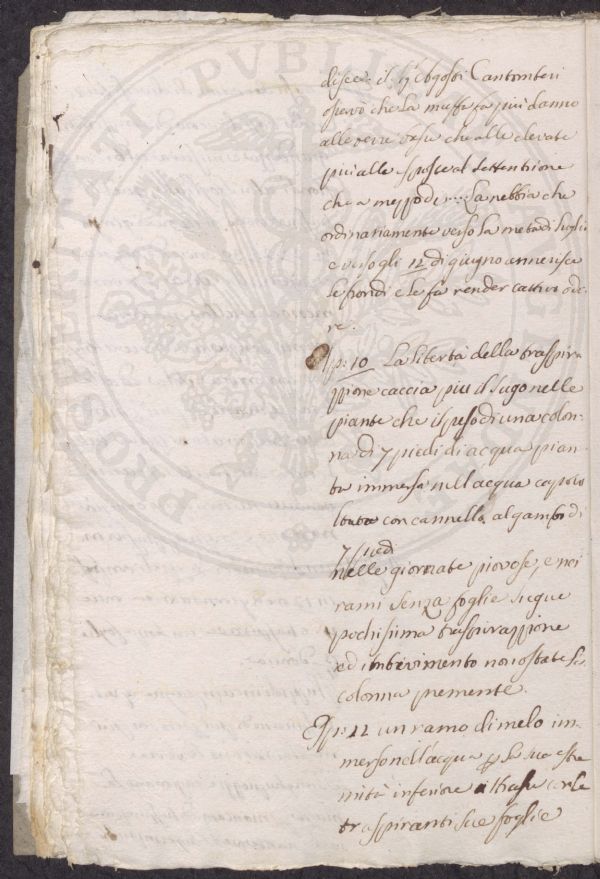 disce: il Sig Cantomberi
provò che la muffa fa più danno
alle terre basse che alle elevate
più alle sposte al settentrione
che a mezzodì ... La nebbia che
ordinariamente verso la metà di luglio
e verso gli 11 di giugno annerisce
le frondi e le fa render cattivo odo-
re.
Esp: 10 La libertà della traspira-
zione caccia più il sugo nelle
piante che il peso di una colon-
na di 7 piedi di acqua pian-
ta immersa nell'acqua
con cannella al gambo di
7 piedi
nelle giornate piovose, e nei
rami senza foglie sugue
pochissima traspirazzione
ed imbevimento non ostante la
colonna premente.
Esp: 11 un ramo di melo im-
merso nell'acqua p la sua estre
mità inferiore e le
traspiranti sue foglie
PROSPERITATI PUBLICAE AUGENDAE